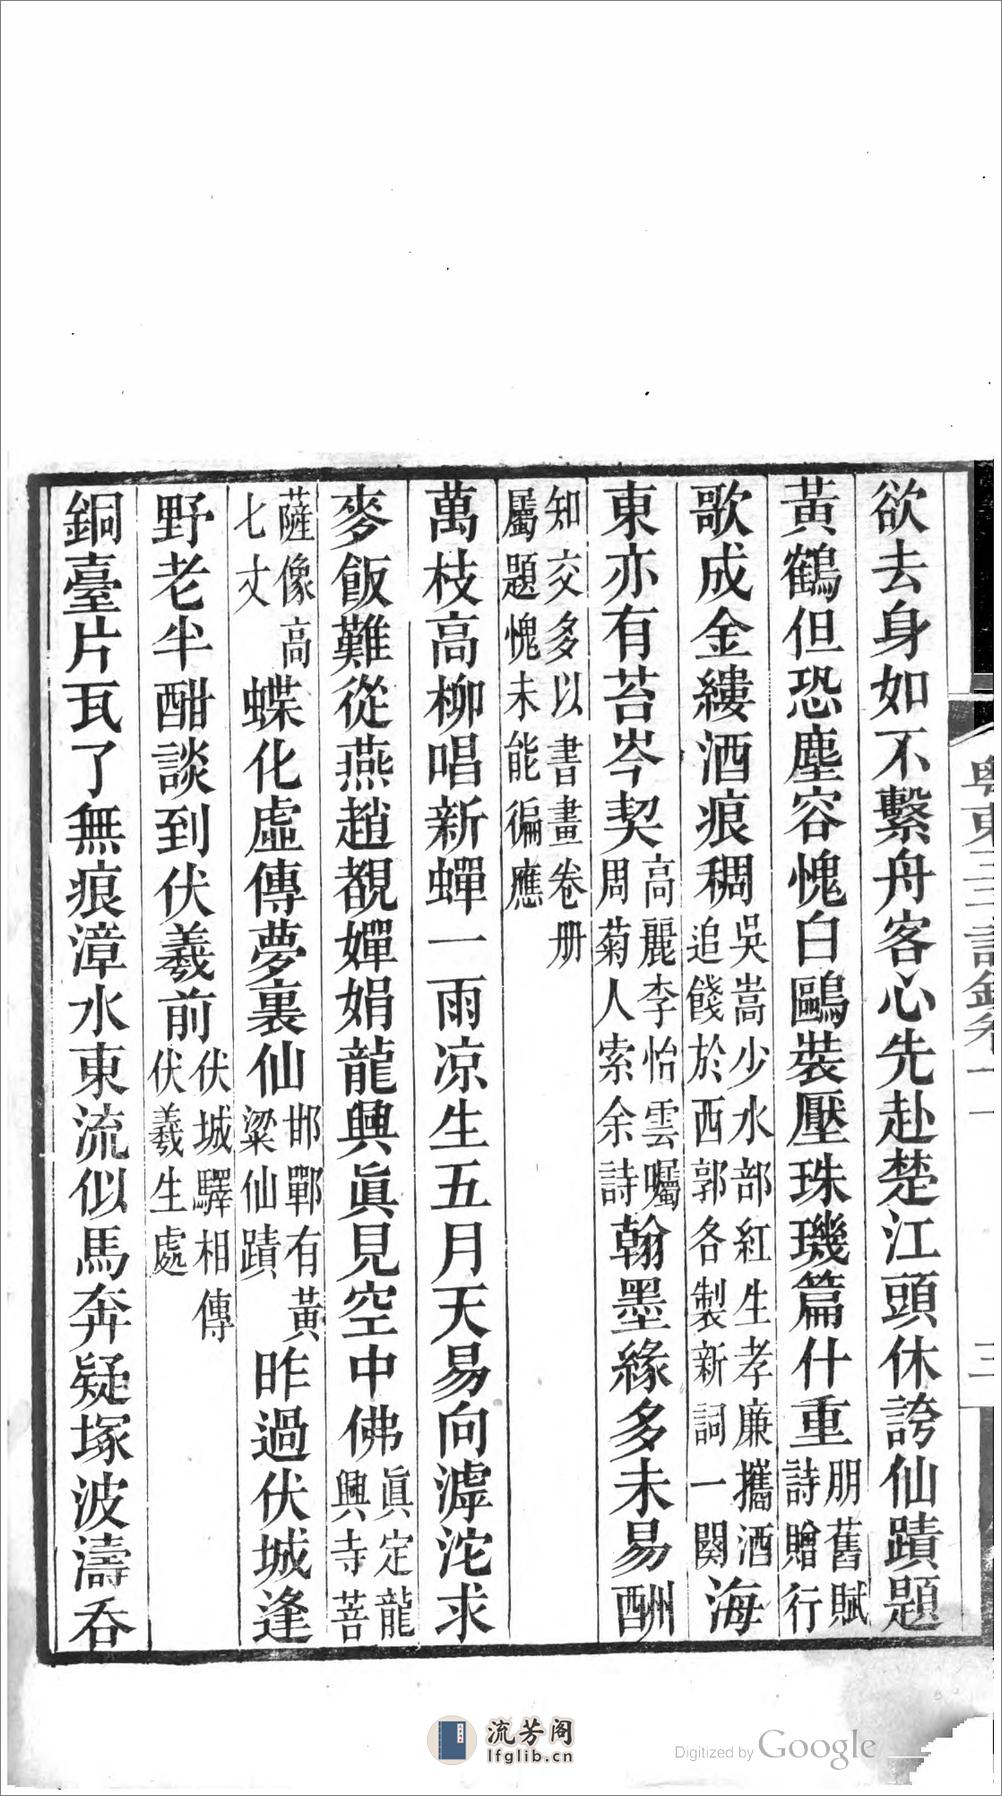 欲去身如不繫舟客心先赴楚江頭休誇仙蹟題
黃鶴但恐塵容愧白鷗裝壓珠璣篇什重朋舊賦詩贈行
歌成金縷酒痕稠吳嵩少水部紅生孝廉攜酒追餞於西郭各製新詞一闋海
東亦有苔岑契高麗李怡雲囑周菊人索余詩翰墨緣多未易酬
知交多以書畫卷册屬題愧未能徧應
萬枝高柳唱新蟬一雨凉生五月天易向滹沱求
麥飯難從燕趙覩嬋娟龍興眞見空中佛眞定龍興寺菩
薩像高七丈蝶化虛傳夢裏仙邯鄲有黃粱仙蹟昨過伏城逢
野老半酣談到伏羲前伏城驛相傳伏羲生處
銅臺片瓦了無痕漳水東流似馬奔疑塚波濤呑
粤東三子詩鈔卷十一
三
流芳阁
lfglib.cn
Digitized by Google